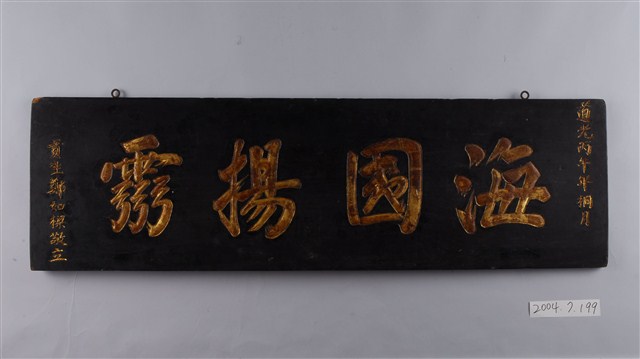 道光丙午年桐月
海國揚靈
生鄭如敬立
2004.7.199